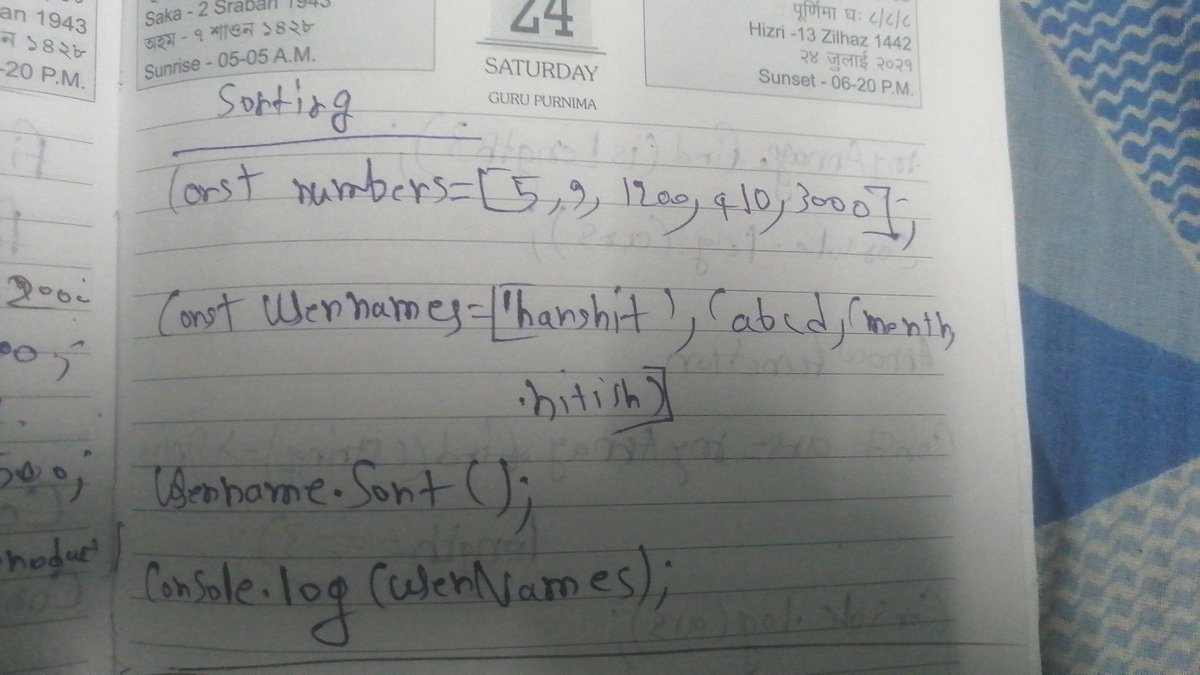 an 1943
Saka - 2 Sraban 1943
24
पूर्णिमा घः ८/८/८
न ১৪২৮
অহম - ৭ শাওন ১৪২৮
Hizri -13 Zilhaz 1442
-20 P.M.
Sunrise - 05-05 A.M.
SATURDAY
२४ जुलाई २०२१
GURU PURNIMA
Sunset - 06-20 P.M.
Sorting
Const numbers=[5,9, 1200, 410, 3000];
Const Usernames=['harshit', 'abcd, 'month,
nitish]
Username.Sort();
Console.log (userNames);